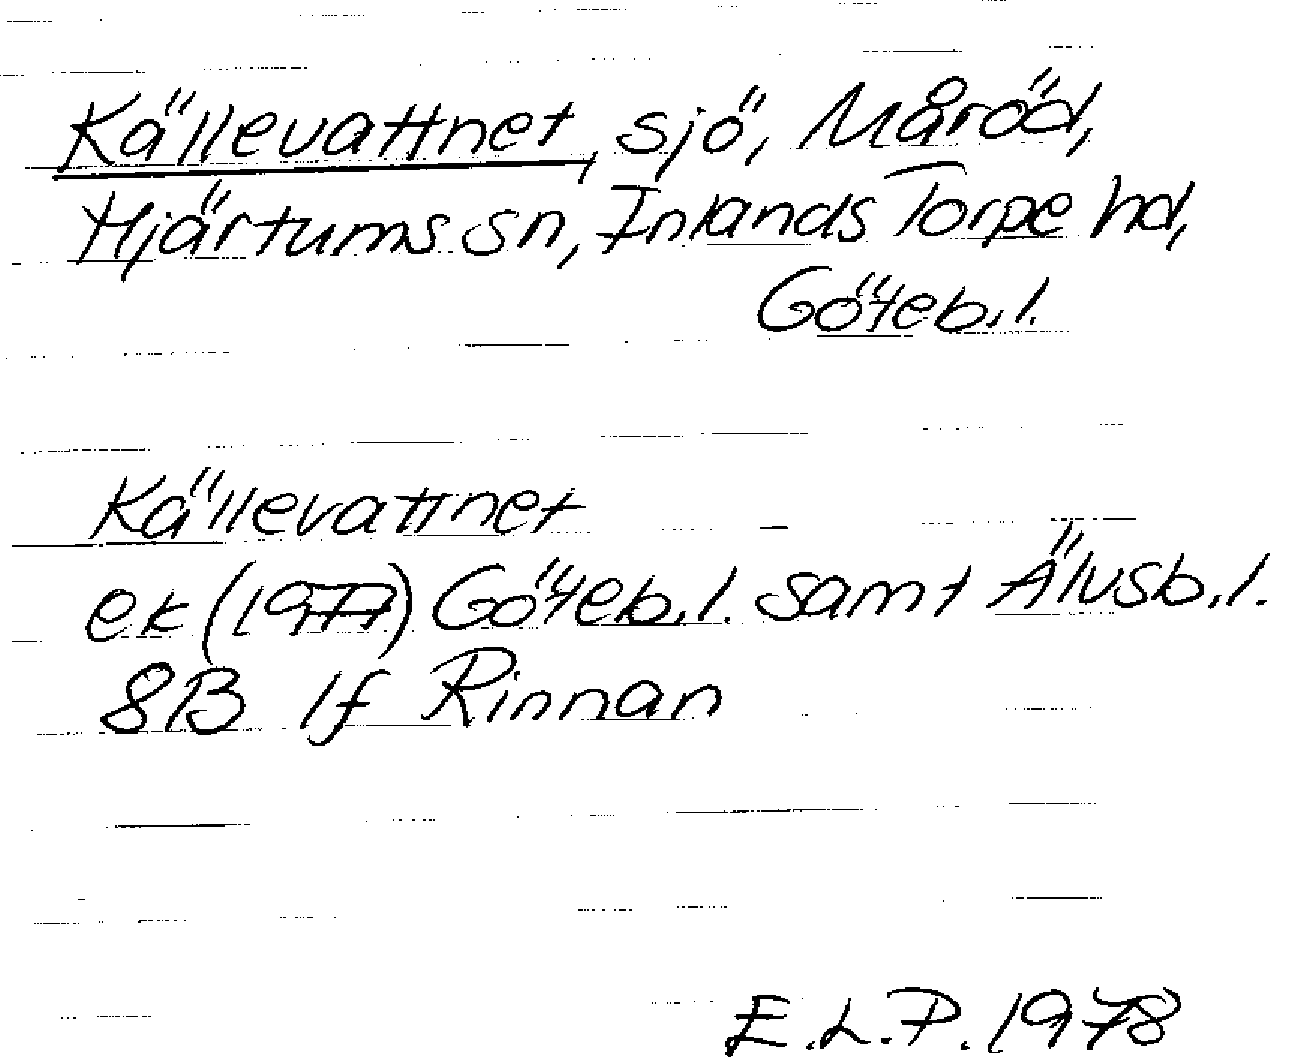 Källevattnet, sjö, Måröd,
Hjärtums sn, Inlands Torpe hd,
Göteb.l.
Källevattnet
ek (1977) Göteb.l. samt Älvsb.l.
8B 1f Rinnan
E.L.P. 1978